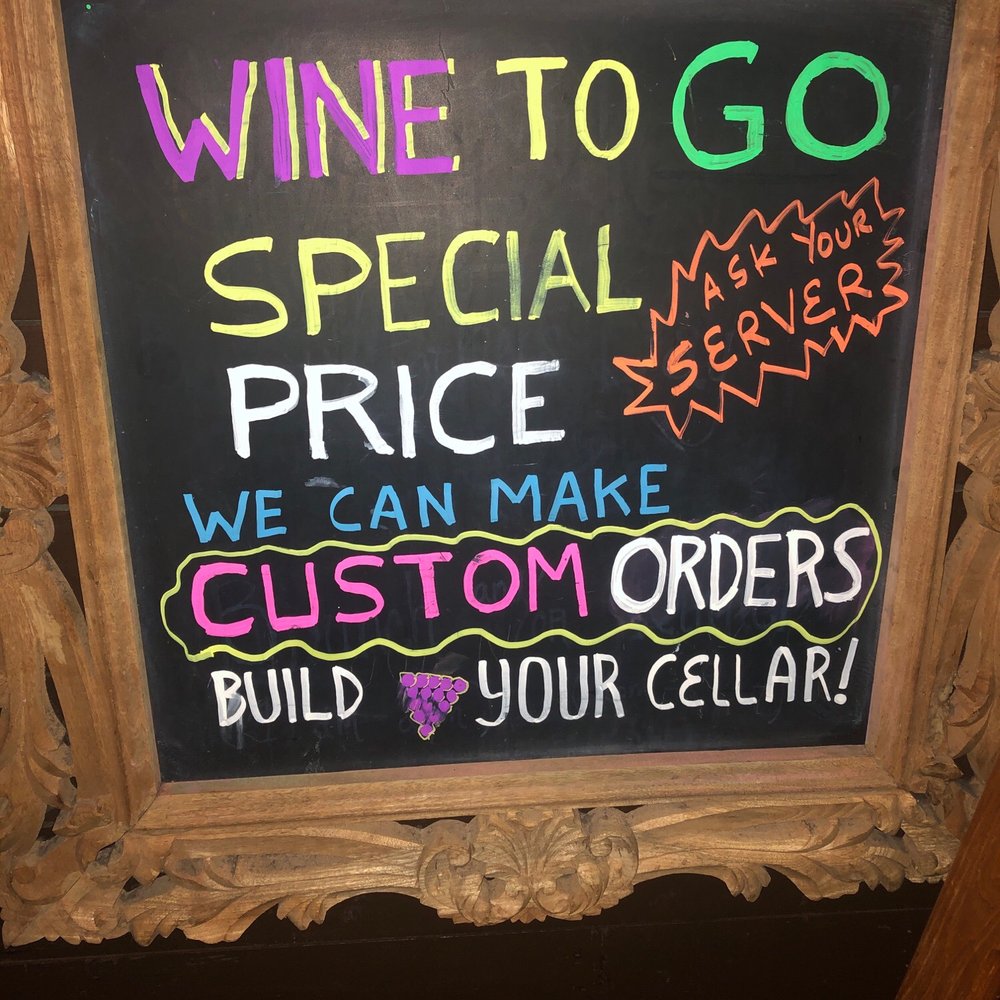 WINE TO GO
SPECIAL
PRICE
ASK YOUR
SERVER
WE CAN MAKE
CUSTOM ORDERS
BUILD YOUR CELLAR!